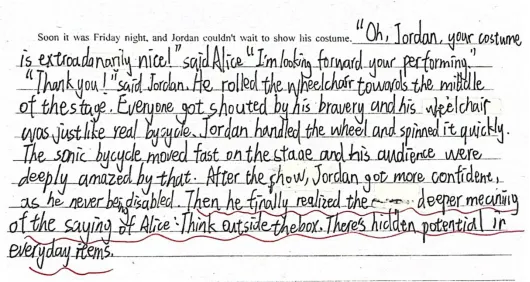 Soon it was Friday night, and Jordan couldn't wait to show his costume. "Oh, Jordan, your costume
is extroadanarily nice!" said Alice "I'm looking forward your performing."
"Thank you!" said Jordan. He rolled the wheelchair towards the middle
of the stage. Everyone got shouted by his bravery and his wheelchair
was just like real bycycle. Jordan handled the wheel and spinned it quickly.
The sonic bycycle moved fast on the stage and his audience were
deeply amazed by that. After the show, Jordan got more confident,
as he never being disabled. Then he finally realized the deeper meaning
of the saying of Alice: Think outside the box. There's hidden potential in
everyday items.